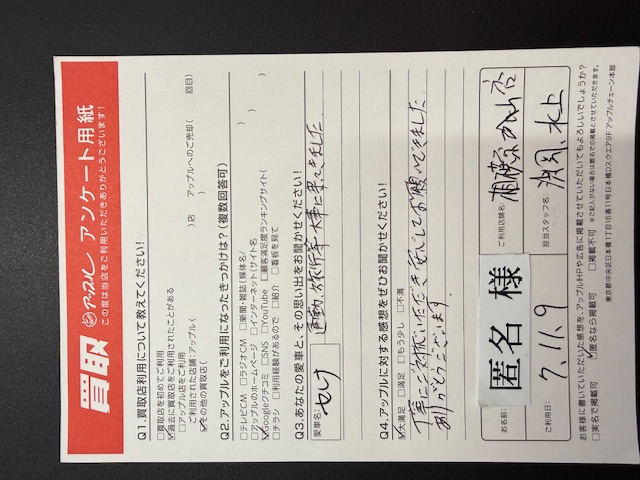 買取 アップル アンケート用紙
この度は当店をご利用いただきありがとうございます!
Q1.買取店利用について教えてください!
□買取店を初めてご利用
☑過去に買取店をご利用されたことがある
□アップル店をご利用
ご利用された店舗:アップル( )店 アップルへのご売却( 回目)
☑その他の買取店( )
Q2.アップルをご利用になったきっかけは?(複数回答可)
□テレビCM □ラジオCM □新聞・雑誌(媒体名/ )
□アップルのホームページ □インターネット(サイト名 )
☑Googleクチコミ □SNS □YouTube □顧客満足度ランキングサイト( )
□チラシ □利用経験があるので □紹介 □看板を見て
Q3.あなたの愛車と、その思い出をお聞かせください!
愛車名: セレナ 通勤、旅行等 大事に乗ってきました
Q4.アップルに対する感想をぜひお聞かせください!
☑大満足 □満足 □もう少し □不満
丁寧にご対応いただき 安心してお願いできました
ありがとうございます。
お名前: 匿名 様 ご利用店舗名: 相模原
ご利用日: 7.11.9 担当スタッフ名: 水上
お客様に書いていただいた感想を、アップルHPや広告に掲載させていただいてもよろしいでしょうか?
□実名で掲載可 ☑匿名なら掲載可 □掲載不可 ※ご記入がない場合は匿名での掲載とさせていただきます。
東京都中央区日本橋1丁目16番11号日本橋Dスクエア8F アップルチェーン本部